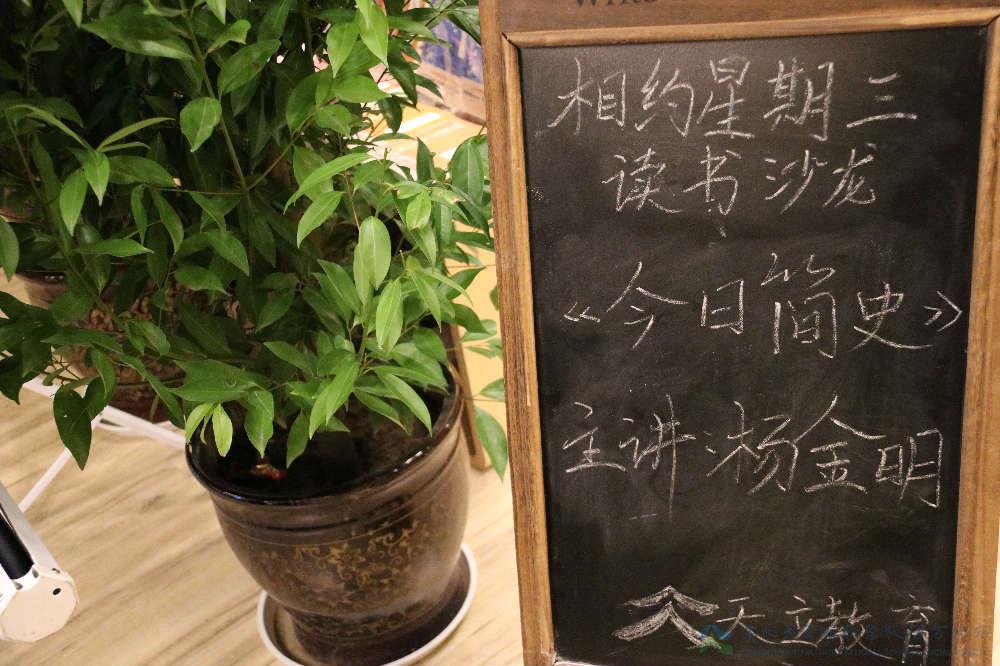 相约星期三
读书沙龙
《今日简史》
主讲：杨金明
天立教育